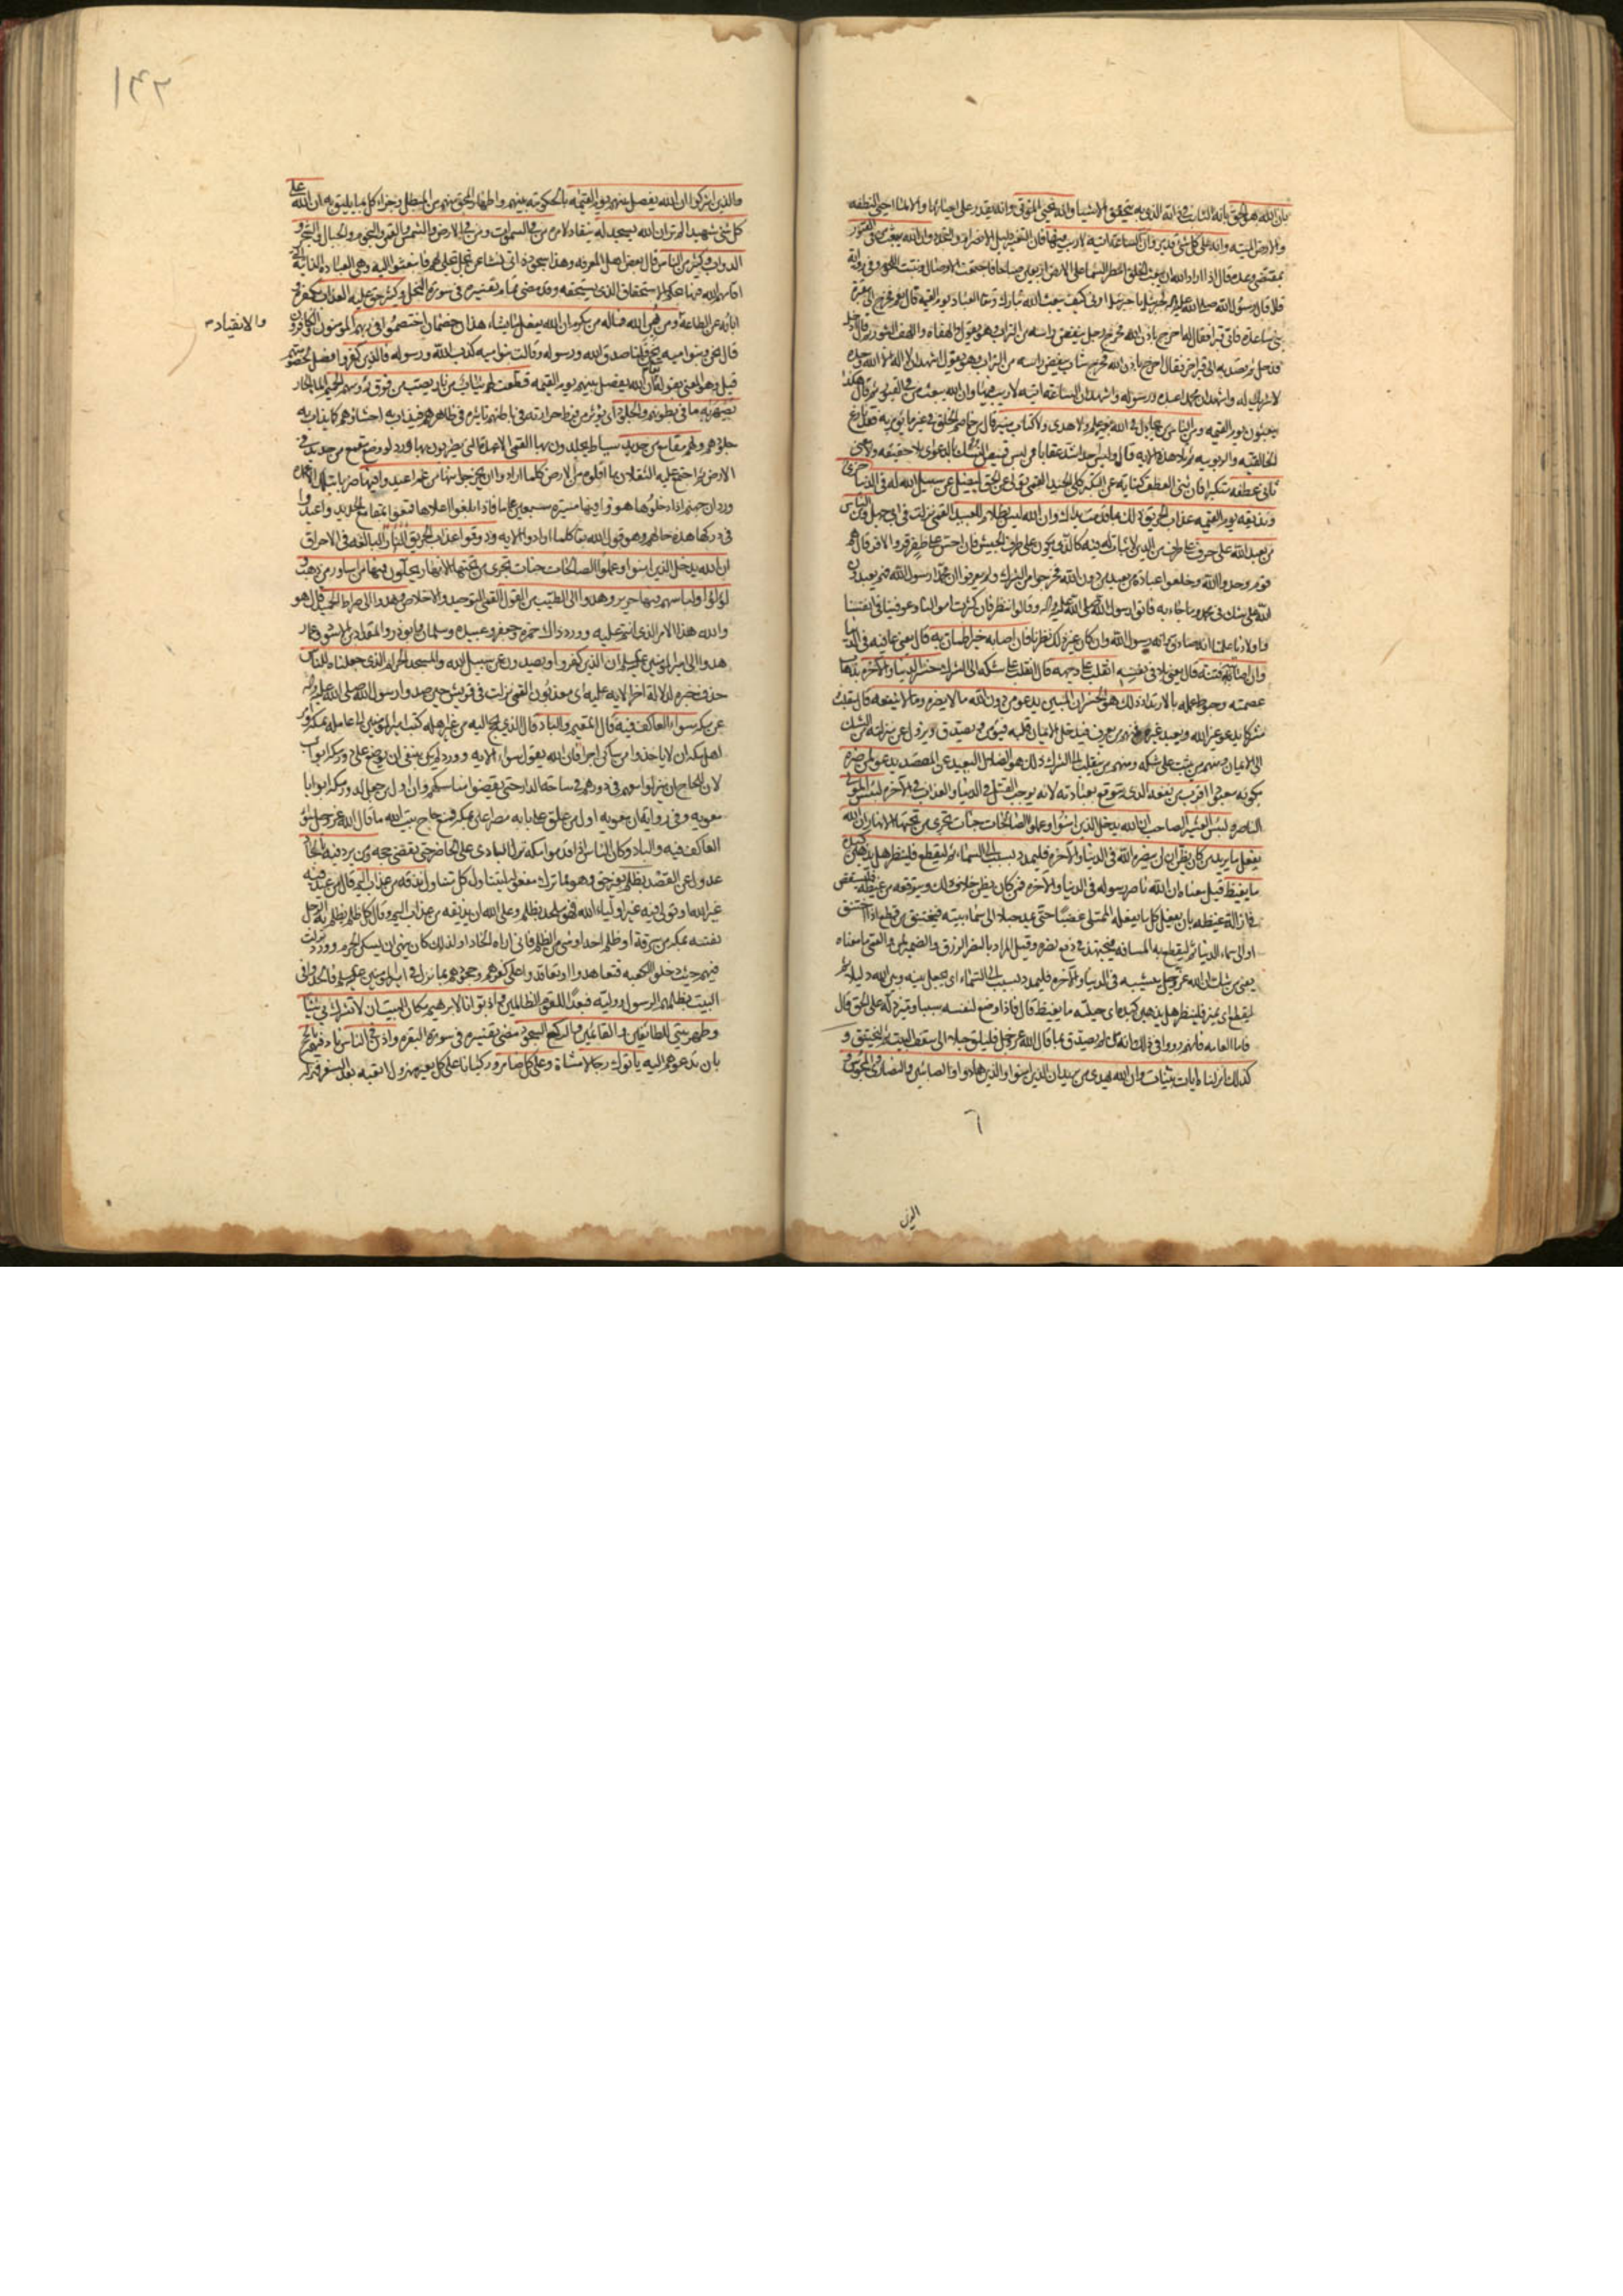 بان الله هو الحق بانه الثابت في ذاته الذي به يتحقق الاشياء وانه يحيي الموتى وانه يقدر على احيائها والا لما احيى النطفة
والارض الميتة وانه على كل شئ قدير وان الساعة اتية لا ريب فيها فان التغير وان الله يبعث من في القبور
بمقتضى وعده قال اذا اراد الله ان يبعث الخلق امطر السماء على الارض اربعين صباحا فاجتمعت الاوصال ونبتت اللحوم وفي رواية
رسول الله يا جبرئيل ارني كيف يبعث الله تبارك وتعالى العباد يوم القيمة قال نعم فخرج الى مقبرة
بني ساعدة فاتى قبرا فقال له اخرج باذن الله فخرج رجل ينفض راسه من التراب وهو يقول والهفاه واللهف الثبور ثم قال ادخل
فدخل ثم قصد به الى قبر اخر فقال اخرج باذن الله فخرج شاب ينفض راسه من التراب وهو يقول اشهد ان لا اله الا الله وحده
لا شريك له واشهد ان محمدا عبده ورسوله واشهد ان الساعة اتية لا ريب فيها وان الله يبعث من في القبور ثم قال هكذا
يبعثون يوم القيمة ومن الناس من يجادل في الله بغير علم ولا هدى ولا كتاب منير
ثاني عطفه متكبرا فان ثني العطف كناية عن التكبر كلي الجيد القمي تولى عن الحق ليضل عن سبيل الله له في الدنيا خزي
ونذيقه يوم القيمة عذاب الحريق ذلك بما قدمت يداك وان الله ليس بظلام للعبيد القمي نزلت في ابي جهل ومن الناس
من يعبد الله على حرف على طرف من الدين لا ثبات له فيه كالذي يكون على طرف الجيش فان احس بظفر قر والا فر قال هم
قوم وحدوا الله وخلعوا عبادة من يعبد من دون الله فخرجوا من الشرك ولم يعرفوا ان محمدا رسول الله فهم يعبدون
الله على شك في محمد وما جاء به فاتوا رسول الله صلى الله عليه واله وقالوا ننظر فان كثرت اموالنا وعوفينا في انفسنا
واولادنا علمنا انه صادق وانه رسول الله وان كان غير ذلك نظرنا فان اصابه خير اطمان به قال يعني عافية في الدنيا
وان اصابته فتنة قال يعني بلاء في نفسه انقلب على وجهه قال انقلب على شكه الى الشرك خسر الدنيا والاخرة بذهاب
عصمته وحبوط عمله بالارتداد ذلك هو الخسران المبين يدعو من دون الله ما لا يضره وما لا ينفعه قال ينقلب
مشركا يدعو غير الله ويعبد غيره فمنهم من يعرف فيدخل الايمان قلبه فيؤمن ويصدق ويزول عن منزلته من الشك
الى الايمان ومنهم من يثبت على شكه ومنهم من ينقلب الى الشرك ذلك هو الضلال البعيد عن المقصد يدعو لمن ضره
بكونه معبودا اقرب من نفعه الذي يتوقع بعبادته لانه يوجب القتل في الدنيا والعذاب في الاخرة لبئس المولى
الناصر ولبئس العشير الصاحب ان الله يدخل الذين امنوا وعملوا الصالحات جنات تجري من تحتها الانهار ان الله
يفعل ما يريد من كان يظن ان لن ينصره الله في الدنيا والاخرة فليمدد بسبب الى السماء ثم ليقطع فلينظر هل يذهبن كيده
ما يغيظ قيل معناه ان الله ناصر رسوله في الدنيا والاخرة فمن كان يظن خلاف ذلك ويتوقعه من غيظه فليستقص
في ازالة غيظه بان يفعل كل ما يفعله الممتلي غضبا حتى يمد حبلا الى سماء بيته فيختنق من قطع اذا اختنق
او الى سماء الدنيا ثم ليقطع به المسافة فيجتهد في دفع نصره وقيل المراد بالنصر الرزق والضمير لمن والقمي ما معناه
يعني من شك ان الله عز وجل يثيبه في الدنيا والاخرة فليمدد بسبب الى السماء اي يجعل بينه وبين الله دليلا ثم
ليقطع اي يميز فلينظر هل يذهبن كيده اي حيلته ما يغيظ قال فاذا وضع لنفسه سببا وميز دله على الحق قال
فاما العامة فانهم رووا في ذلك انه من لم يصدق بما قال الله عز وجل فليلق حبلا الى سقف البيت ثم ليختنق و
كذلك انزلناه ايات بينات وان الله يهدي من يريد ان الذين امنوا والذين هادوا والصابئين والنصارى والمجوس
٦
١٤٢
والذين اشركوا ان الله يفصل بينهم يوم القيمة بالحكومة بينهم واظهار المحق منهم من المبطل وجزاء كل ما يليق به ان الله على
كل شئ شهيد الم تر ان الله يسجد له ينقاد لامره من في السموات ومن في الارض والشمس والقمر والنجوم والجبال والشجر و
الدواب وكثير من الناس قال بعض اهل المعرفة وهذا سجود ذاتي نشا عن تجل تجلى لهم فانبعثوا اليه وهي العبادة الذاتية التي
اقامهم الله فيها بحكم الاستحقاق الذي يستحقه وقد مضى تمام تفسيره في سورة النحل وكثير حق عليه العذاب بكفره
وابائه عن الطاعة ومن يهن الله فما له من مكرم ان الله يفعل ما يشاء هذان خصمان اختصموا في ربهم المؤمنون والكافرون
والانقياد
قال نحن وبنو امية نحن قلنا صدق الله ورسوله وقالت بنو امية كذب الله ورسوله فالذين كفروا فصل لخصومتهم
قيل وهو المعنى بقوله ان الله يفصل بينهم يوم القيمة قطعت لهم ثياب من نار يصب من فوق رؤسهم الحميم الماء الحار
يصهر به ما في بطونهم والجلود اي يؤثر من فرط حرارته في باطنهم تاثيره في ظاهرهم فيذاب به احشاؤهم كما يذاب به
جلودهم ولهم مقامع من حديد سياط يجلدون بها القمي الاعمدة التي يضربون بها وورد لو وضع مقمع من حديد في
الارض ثم اجتمع عليه الثقلان ما اقلوه من الارض كلما ارادوا ان يخرجوا منها من غم اعيدوا فيها ضربا بتلك الاعمدة
وورد ان جهنم اذا دخلوها هووا فيها مسيرة سبعين عاما فاذا بلغوا اعلاها قمعوا بمقامع الحديد واعيدوا
في دركها هذه حالهم وهو قول الله تعالى كلما ارادوا الاية وذوقوا عذاب الحريق النار البالغة في الاحراق
ان الله يدخل الذين امنوا وعملوا الصالحات جنات تجري من تحتها الانهار يحلون فيها من اساور من ذهب و
لؤلؤا ولباسهم فيها حرير وهدوا الى الطيب من القول القمي التوحيد والاخلاص وهدوا الى صراط الحميد قال هو
والله هذا الامر الذي انتم عليه وورد ذاك حمزة وجعفر وعبيدة وسلمان وابو ذر والمقداد بن الاسود وعمار
هدوا الى امير المؤمنين ان الذين كفروا ويصدون عن سبيل الله والمسجد الحرام الذي جعلناه للناس
حذف خبره لدلالة اخر الاية عليه اي معذبون القمي نزلت في قريش حين صدوا رسول الله صلى الله عليه واله
عن مكة سواء العاكف فيه قال المقيم والباد قال الذي يحج اليه من غير اهله كتب امير المؤمنين الى عامله بمكة وامر
اهل مكة ان لا ياخذوا من ساكن اجرا فان الله يقول سواء الاية وورد لم يكن ينبغي ان يوضع على دور مكة ابواب
لان للحاج ان ينزلوا معهم في دورهم في ساحة الدار حتى يقضوا مناسكهم وان اول من جعل لدور مكة ابوابا
معوية وفي رواية ان معوية اول من علق على بابه مصراعين بمكة فمنع حاج بيت الله ما قال الله عز وجل سواء
العاكف فيه والباد وكان الناس اذا قدموا مكة نزل البادي على الحاضر حتى يقضي حجه ومن يرد فيه بالحاد
عدول عن القصد بظلم بغير حق وهو مما ترك مفعوله ليتناول كل متناول نذقه من عذاب اليم قال من عبد فيه
غير الله او تولى فيه غير اولياء الله فهو ملحد بظلم وعلى الله ان يذيقه من عذاب اليم وقال كل ظلم يظلم به الرجل
نفسه بمكة من سرقة او ظلم احد او شئ من الظلم فاني اراه الحادا ولذلك كان ينهى ان يسكن الحرم وورد نزلت
فيهم حيث دخلوا الكعبة فتعاهدوا وتعاقدوا على كفرهم وجحودهم بما نزل في امير المؤمنين فالحدوا في
البيت بظلمهم الرسول ووليه فبعدا للقوم الظالمين واذ بوانا لابرهيم مكان البيت ان لا تشرك بي شيئا
وطهر بيتي للطائفين والقائمين والركع السجود مضى تفسيره في سورة البقرة واذن في الناس ناد فيهم بالحج
بان تدعوهم اليه ياتوك رجالا مشاة وعلى كل ضامر وركبانا على كل بعير مهزول اتعبه بعد السفر